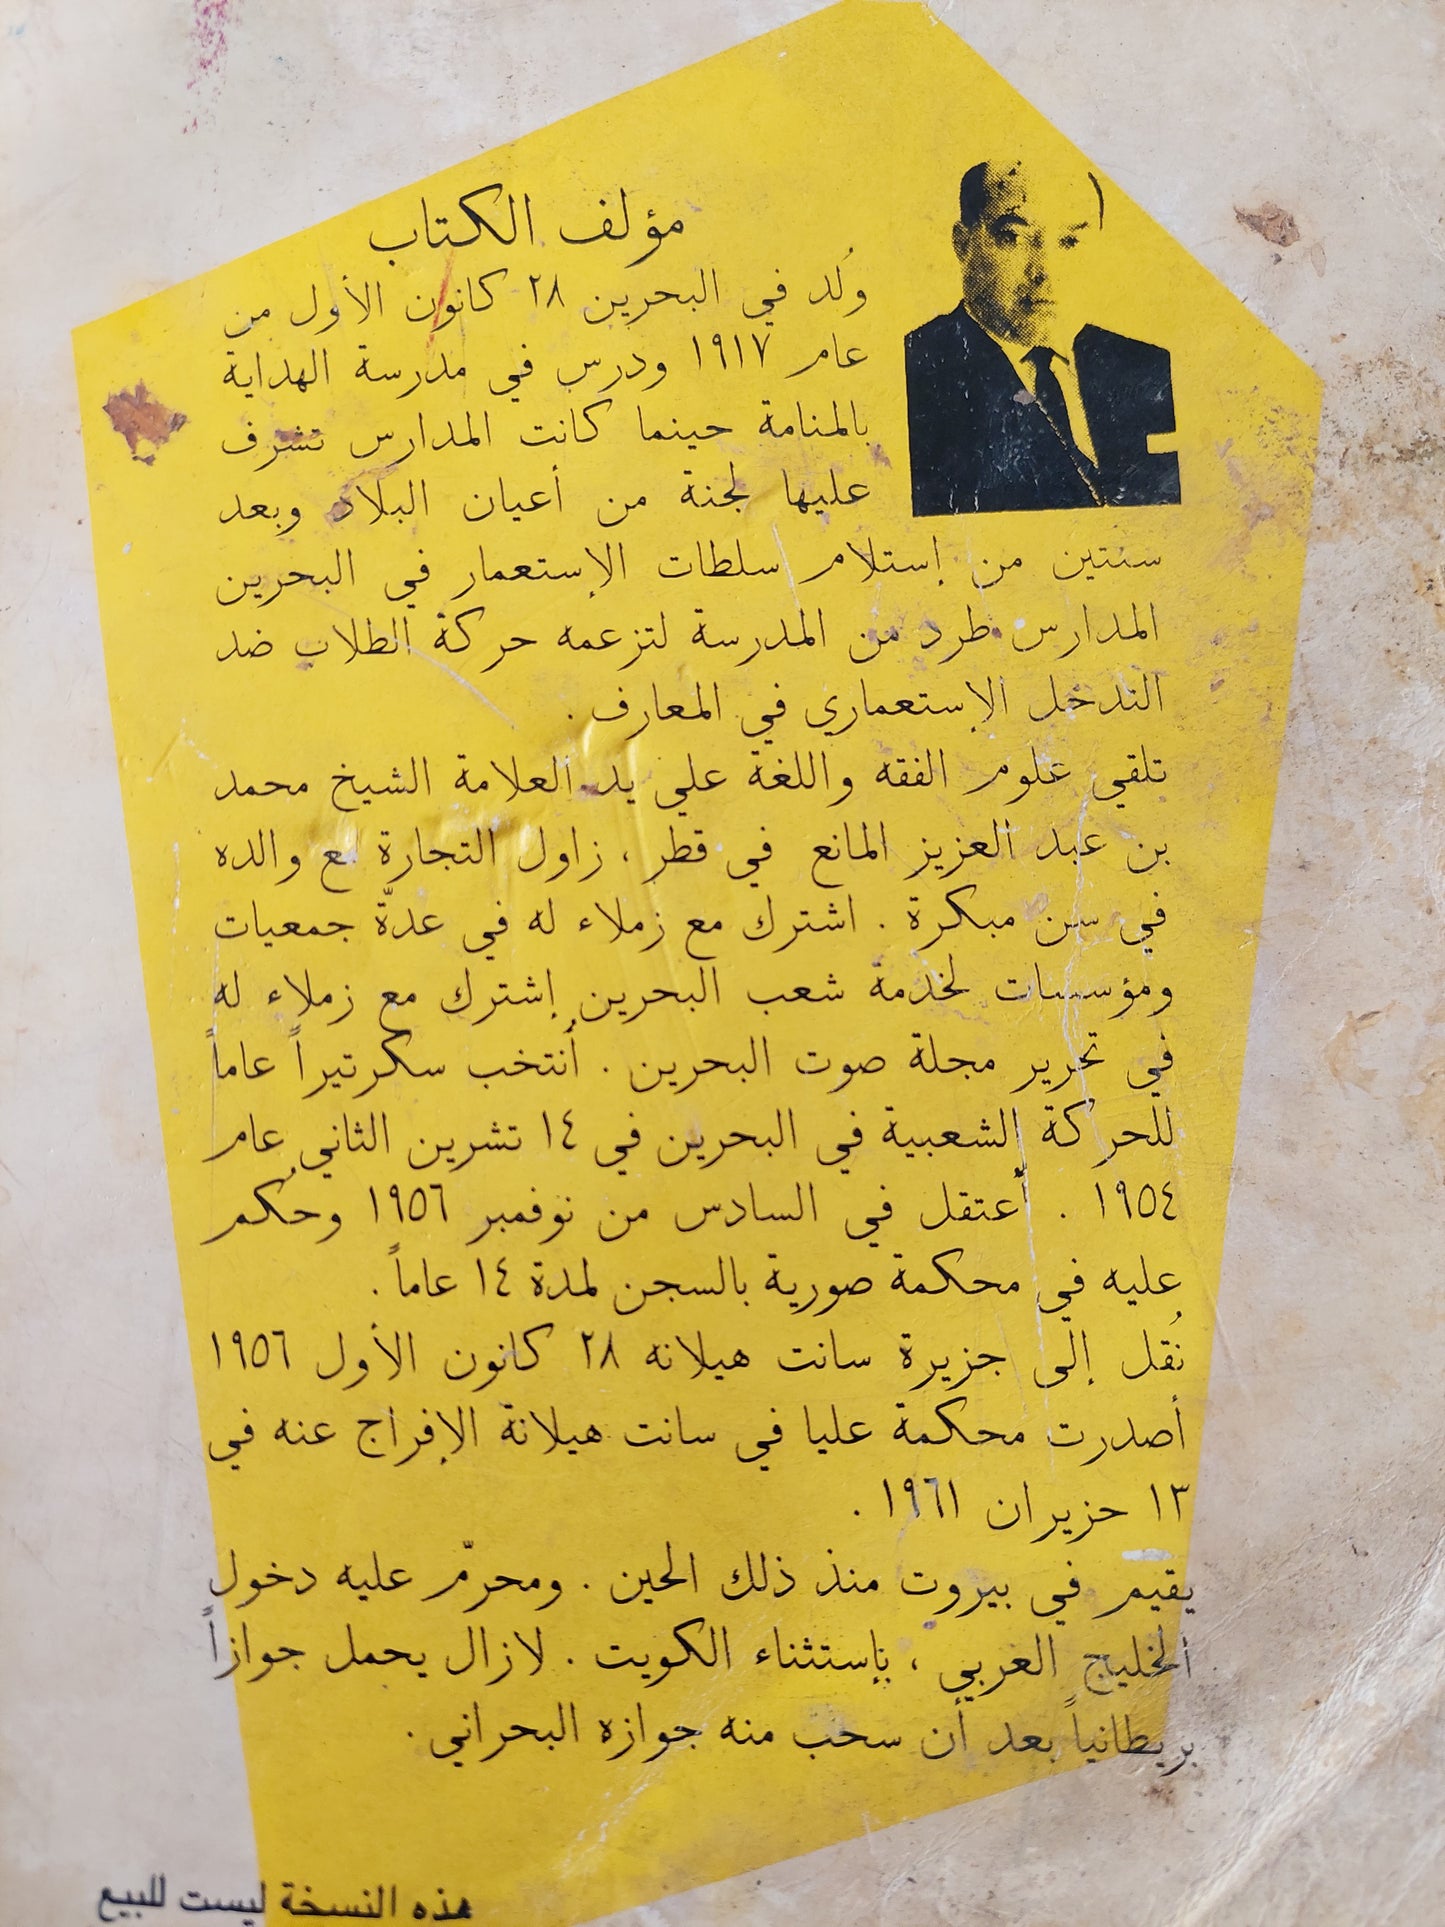 مؤلف الكتاب
وُلد في البحرين ٢٨ كانون الأول من
عام ١٩١٧ ودرس في مدرسة الهداية
بالمنامة حينما كانت المدارس تشرف
عليها لجنة من أعيان البلاد وبعد
سنتين من إستلام سلطات الإستعمار في البحرين
المدارس طرد من المدرسة لتزعمه حركة الطلاب ضد
التدخل الإستعماري في المعارف .
تلقي علوم الفقه واللغة علي يد العلامة الشيخ محمد
بن عبد العزيز المانع في قطر ، زاول التجارة مع والده
في سن مبكرة . اشترك مع زملاء له في عدّة جمعيات
ومؤسسات لخدمة شعب البحرين إشترك مع زملاء له
في تحرير مجلة صوت البحرين . أُنتخب سكرتيراً عاماً
للحركة الشعبية في البحرين في ١٤ تشرين الثاني عام
١٩٥٤ . أعتقل في السادس من نوفمبر ١٩٥٦ وحُكم
عليه في محكمة صورية بالسجن لمدة ١٤ عاماً .
نُقل إلى جزيرة سانت هيلانه ٢٨ كانون الأول ١٩٥٦
أصدرت محكمة عليا في سانت هيلانة الإفراج عنه في
١٣ حزيران ١٩٦١ .
يقيم في بيروت منذ ذلك الحين . ومحرّم عليه دخول
الخليج العربي ، بإستثناء الكويت . لازال يحمل جوازاً
بريطانياً بعد أن سحب منه جوازه البحراني .
هذه النسخة ليست للبيع